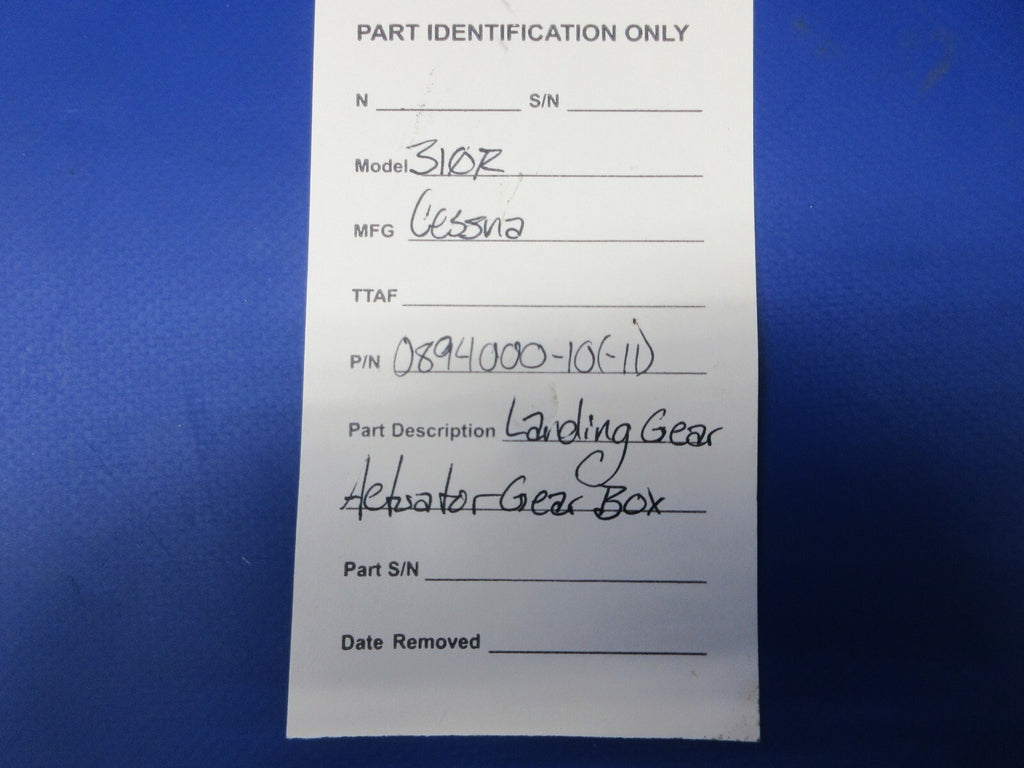 PART IDENTIFICATION ONLY
N S/N
Model 310R
MFG Cessna
TTAF
P/N 0894000-10(-11)
Part Description Landing Gear
Actuator Gear Box
Part S/N
Date Removed